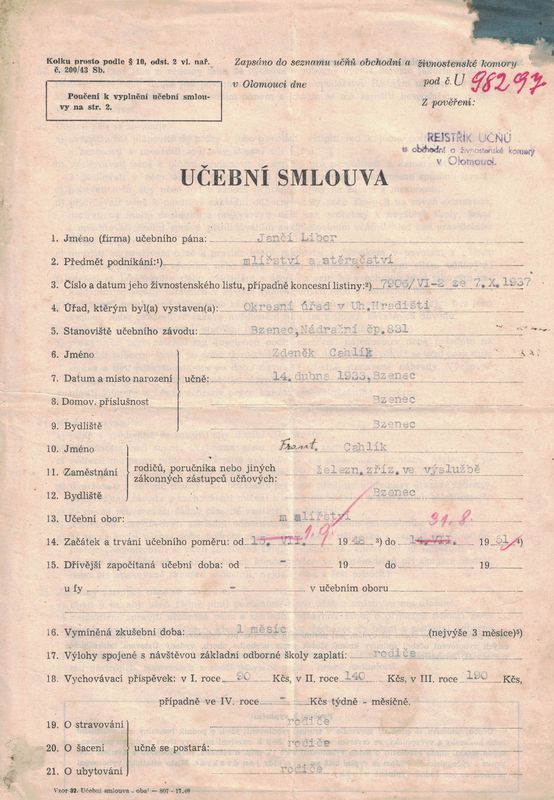 Kolku prosto podle § 10, odst. 2 vl. nař.
č. 200/43 Sb.
Poučení k vyplnění učební smlou-
vy na str. 2.
Zapsáno do seznamu učňů obchodní a živnostenské komory
v Olomouci dne pod č. U 98297
Z pověření:
REJSTŘÍK UČŇŮ
u obchodní a živnostenské komory
v Olomouci.
UČEBNÍ SMLOUVA
1. Jméno (firma) učebního pána: Jančí Libor
2. Předmět podnikání:¹) mlířství a atěračství
3. Číslo a datum jeho živnostenského listu, případně koncesní listiny:²) 7906/VI-2 ze 7.X.1937
4. Úřad, kterým byl(a) vystaven(a): Okresní úřad v Uh.Hradišti
5. Stanoviště učebního závodu: Bzenec,Nádražní čp.831
6. Jméno Zdeněk Cahlík
7. Datum a místo narození učně: 14.dubna 1933,Bzenec
8. Domov. příslušnost Bzenec
9. Bydliště Bzenec
10. Jméno Frant. Cahlík
11. Zaměstnání rodičů, poručníka nebo jiných zákonných zástupců učňových: železn.zříz.ve výslužbě
12. Bydliště Bzenec
13. Učební obor: m mlířství
14. Začátek a trvání učebního poměru: od 15. VII. 1.9. 1948 ³) do 14.VII. 31.8. 1951 ⁴)
15. Dřívější započítaná učební doba: od - 19 do - 19
u fy - v učebním oboru
16. Vymíněná zkušební doba: 1 měsíc (nejvýše 3 měsíce)⁵)
17. Výlohy spojené s návštěvou základní odborné školy zaplatí: rodiče
18. Vychovávací příspěvek: v I. roce 90 Kčs, v II. roce 140 Kčs, v III. roce 190 Kčs,
případně ve IV. roce - Kčs týdně - měsíčně.
19. O stravování rodiče
20. O šacení učně se postará: rodiče
21. O ubytování rodiče
Vzor 32. Učební smlouva